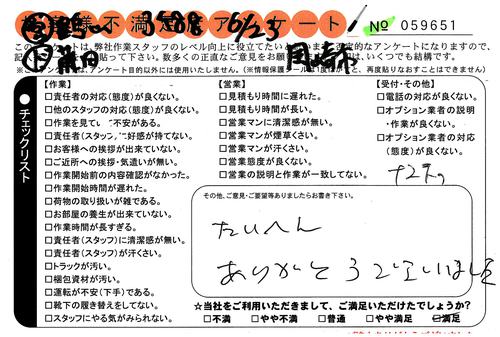 お客様不満足度アンケート
3588 6/23
No 059651
岡崎市
このアンケートは、弊社作業スタッフのレベル向上に役立てたい
チェックリスト
【作業】
□責任者の対応(態度)が良くない。
□他のスタッフの対応(態度)が良くない。
□作業を見てい 不安がある。
□責任者(スタッフ に好感が持てない。
□お客様への挨拶が出来ていない。
□ご近所への挨拶・気遣いが無い。
□作業開始前の内容確認がなかった。
□作業開始時間が遅れた。
□荷物の取り扱いが雑である。
□お部屋の養生が出来ていない。
□作業時間が長すぎる。
□責任者(スタッフ)に清潔感が無い。
□責任者(スタッフ)が汗くさい。
□トラックが汚い。
□梱包資材が汚い。
□運転が不安(下手)である。
□靴下の履き替えをしてない。
□スタッフにやる気がみられない。
【営業】
□見積もり時間に遅れた。
□見積もり時間が長い。
□営業マンに清潔感が無い。
□営業マンが煙草くさい。
□営業マンが汗くさい。
□営業態度が良くない。
□営業の説明と作業が一致してない。
【受付・その他】
□電話の対応が良くない。
□オプション業者の説明
・作業が良くない。
□オプション業者の対応
(態度)が良くない。
その他、ご意見・ご要望等ありましたらお書き下さい。
たいへん
ありがとうございました
☆当社をご利用いただきまして、ご満足いただけたでしょうか?
□不満 □やや不満 □普通 □やや満足 □満足